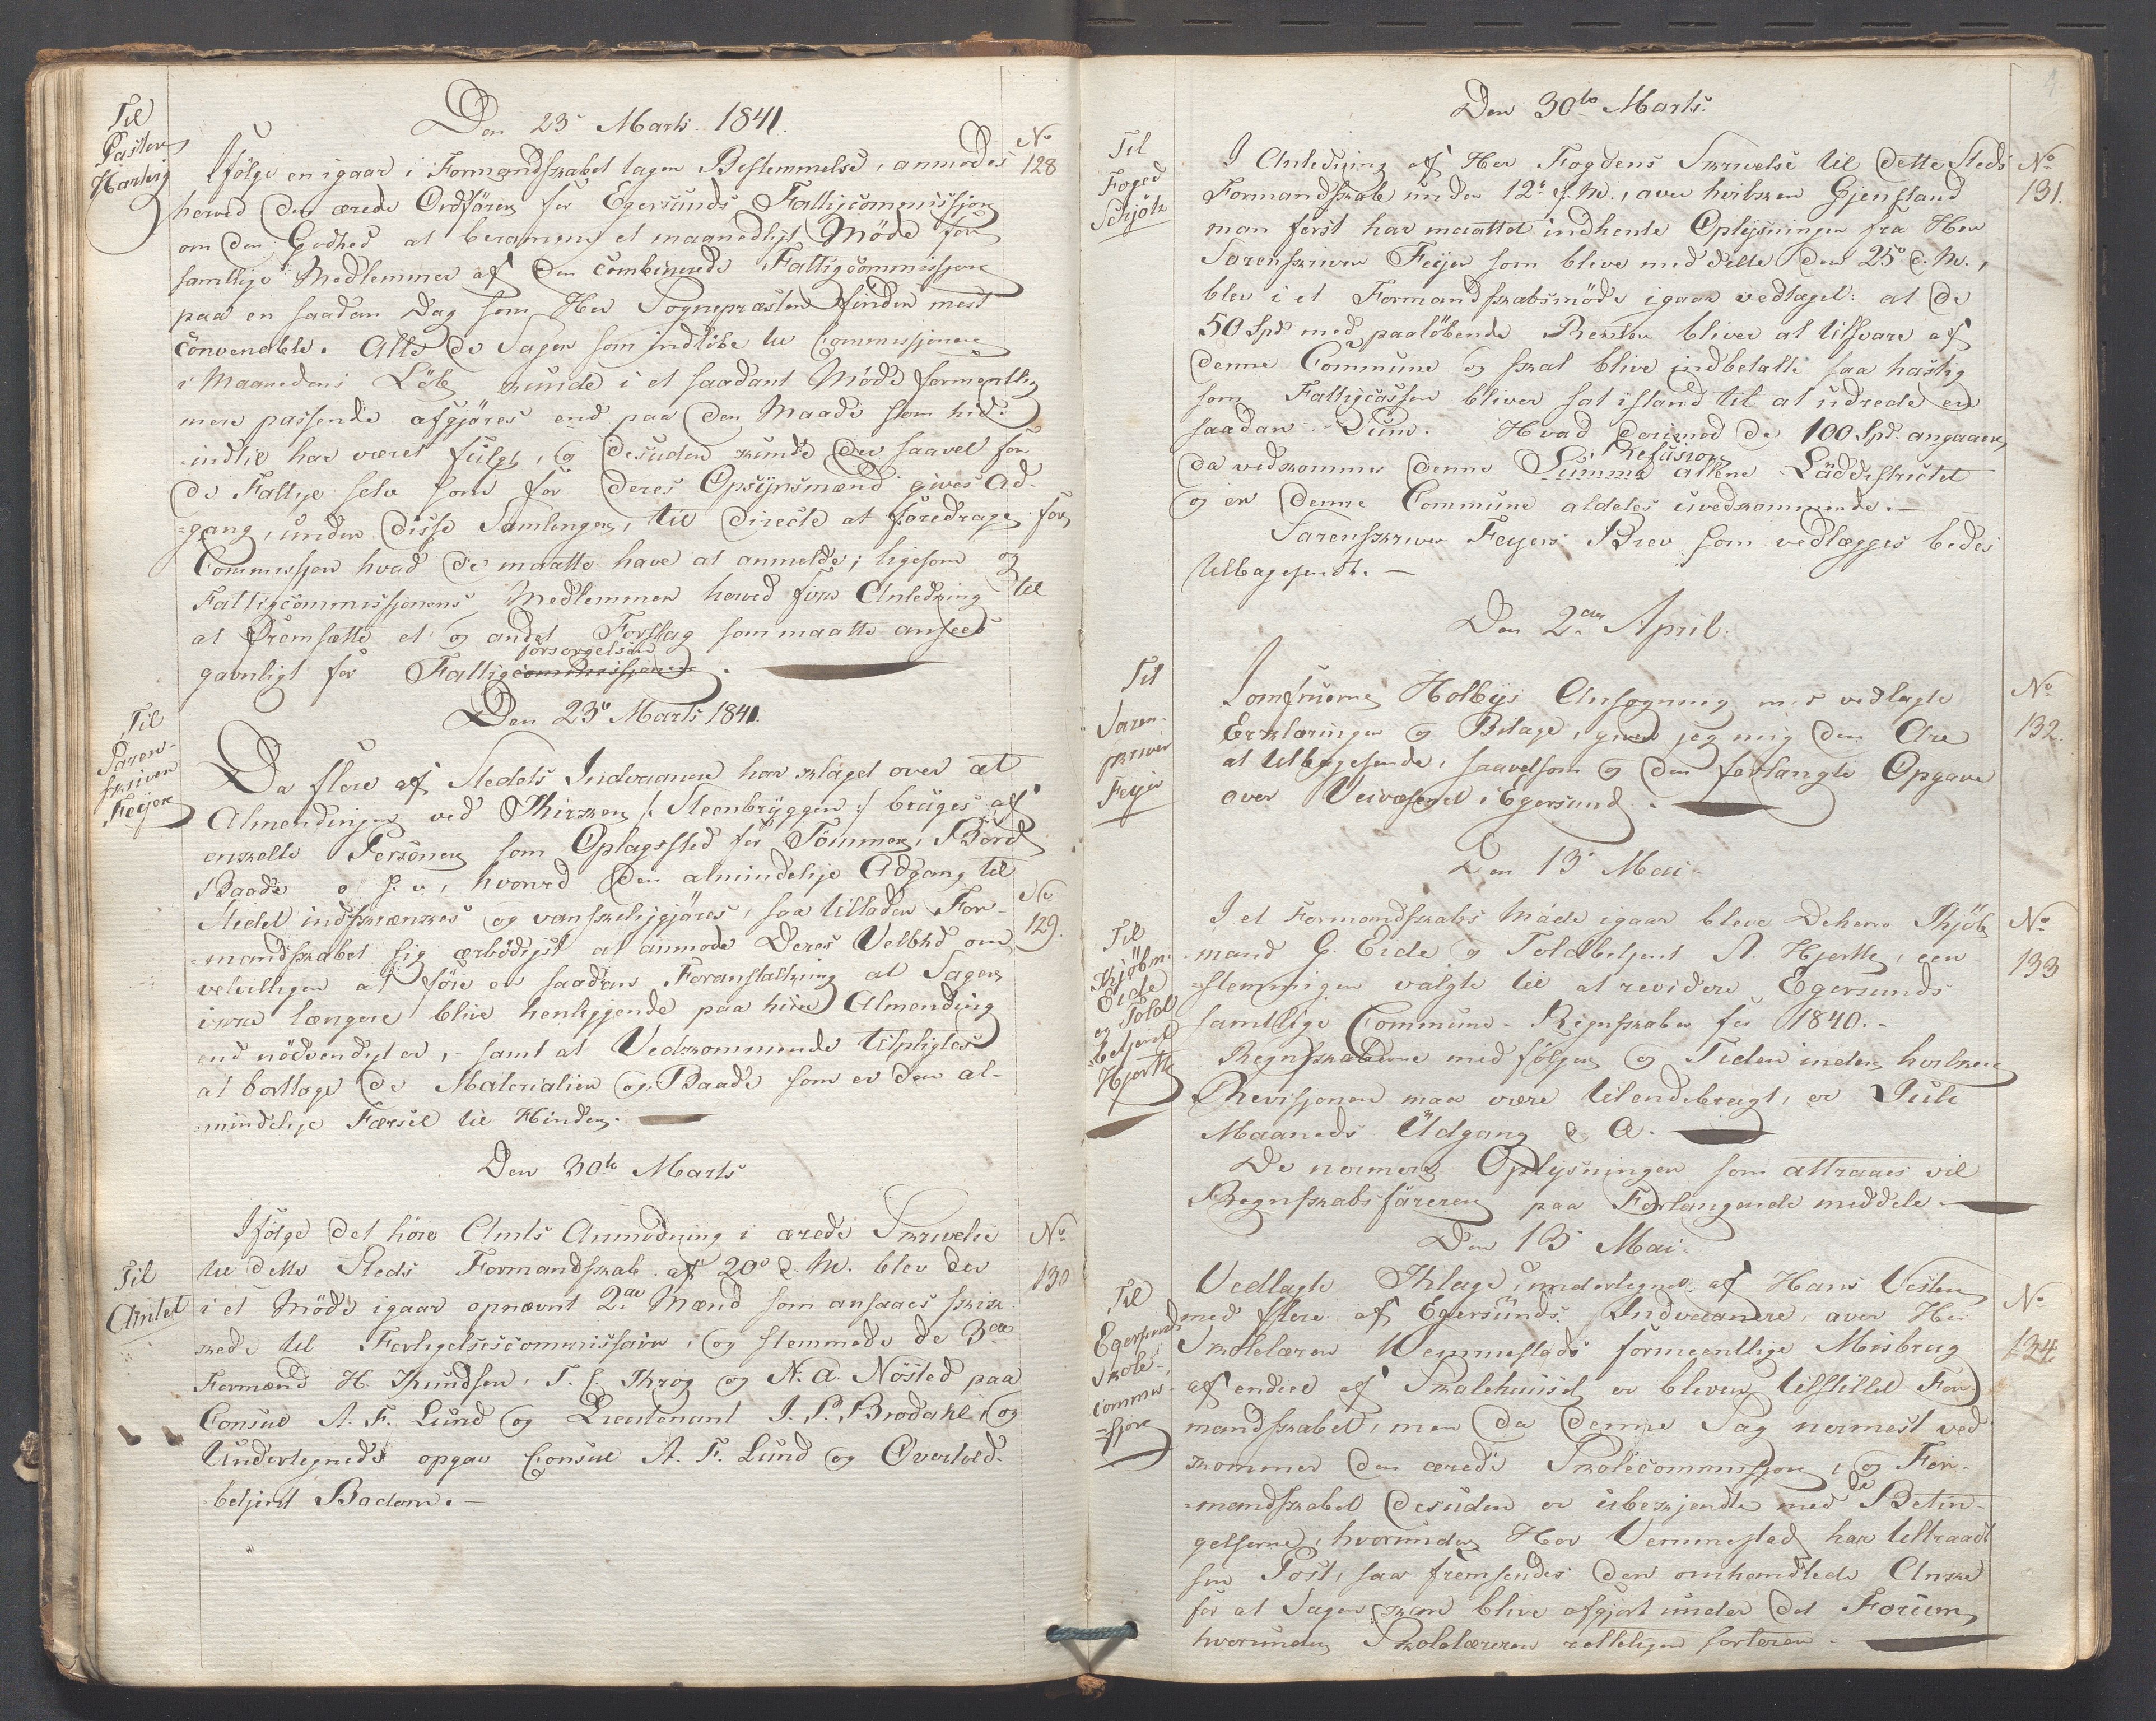 Den 23' Marts 1841.
Til
Pastor
Hartvig
No
128
Ifølge en igaar i Formandskabet tagen Bestemmelse, anmodes
herved den ærede Ordfører for Egersunds Fattigcommission
om den Godhed at beramme et maanedligt Møde for
samtlige Medlemmer af den combinerede Fattigcommission
paa en saadan Dag som Her Sognepræsten finder mest
convenable. Alle de Sager som indløbe til Commissionen
i Maanedens Løb kunde i et saadant Møde formentlig
mere passende afgjøres end paa den Maade som hid-
indtil har været fulgt, og desuden kunde der saavel for
de Fattige selv som for deres Opsynsmænd gives Ad-
gang, under disse Samlinger, til directe at foredrage for
Commissjon hvad de maatte have at anmelde; ligesom og
Fattigcommissjonens Medlemmer herved fore Anledning til
at fremsætte et og andet Forslag som maatte ansees
forsorgelsen
gavnligt for Fattigcommissjonen.
Den 23' Marts 1841.
Til
Soren-
skriver
Feijer
No
129.
Da flere af Stedets Indvaanere har klaget over at
Almendingen ved Kirken /: Steenbryggen :/ bruges af
enkelte Personer som Oplagssted for Tømmer, Bord
Baade o. s. v., hvorved den almindelige Adgang til
Stedet indskrænkes og vanskeliggjøres, saa tillader For-
mandskabet sig ærbødigst at anmode Deres Velbhd om
velvilligen at føie en saadan Foranstaltning at Sager
ikke længere blive henliggende paa hiin Almending
end nødvendigt er, samt at Vedkommende tilpligtes
at borttage de Materialier og Baade som er den al-
mindelige Færsel til Hinder.
Den 30te Marts
Til
Amtet
No
130
Ifølge det høie Amts Anmodning i ærede Skrivelse
til dette Steds Formandskab af 20' d. M. blev der
i et Møde igaar opnævnt 2de Mænd som ansaaes skik-
kede til Forligelsescommissair, og stemmede de 3de
Formænd H. Knudsen, T. C. Krog og N. A. Nösted paa
Consul A. F. Lund og Lieutenant J. P. Brodahl, og
Undertegnede opgav Consul A. F. Lund og Overtold-
betjent Badom.
Den 30te Marts.
Til
Foged
Schjøtz
No
131.
I Anledning af Her Fogdens Skrivelse til dette Steds
Formandskab under 12' f. M., over hvilken Gjenstand
man først har maattet indhente Oplysninger fra Her
Sorenskriver Feijer som bleve meddelte den 25' d. M.,
blev i et Formandskabsmøde igaar vedtaget: at de
50 Spd med paaløbende Renter bliver at tilsvare af
denne Commune og skal blive indbetalt saa hastig
som Fattigcassen bliver sat istand til at udrede en
saadan Sum. Hvad derimod de 100 Spd. angaaer,
Refusion
da vedkommer denne Summa allene Laddistrictet
og er denne Commune aldeles uvedkommende.
Sorenskriver Feyers Brev som vedlægges bedes
tilbagesendt.
Den 2den April.
Til
Soren-
skriver
Feijer
No
132.
Jomfruerne Holbys Ansøgning med vedlagte
Erklæringer og Bilage, giver jeg mig den Ære
at tilbagesende, saavelsom og den forlangte Opgave
over Veivæsenet i Egersund.
Den 13' Mai.
Til
Kjøbm.
Eide
og Told
betjent
Hjorth
No
133
I et Formandskabs Møde igaar bleve Deherre Kjøb-
mand G. Eide og Toldbetjent A. Hjorth, een-
stemmigen valgte til at revidere Egersunds
samtlige Commune-Regnskaber for 1840.
Regnskaberne medfølger og Tiden inden hvilken
Revisjonen maa være tilendebragt, er Juli
Maaneds Udgang d. A.
De nermere Oplysninger som attraaes vil
Regnskabsføreren paa Forlangende meddele.
Den 13' Mai.
Til
Egersund
Skole-
commis-
sjon
No
134.
Vedlagte Klage, undertegnet af Hans Vesten
med flere af Egersunds Indvaanere, over Her
Skolelærer Vemmestads formeentlige Misbrug
af endeel af Skolehuuset er bleven tilstillet For-
mandskabet, men da denne Sag nermest ved-
kommer den ærede Skolecommissjon, og For-
mandskabet desuden er ubekjendte med de Betin-
gelserne, hvorunder Her Vemmestad har tiltraadt
sin Post, saa fremsendes den omhandlede Anke
for at Sagen kan blive afgjort under det Forum
hvorunder Skolelæreren retteligen sorterer.